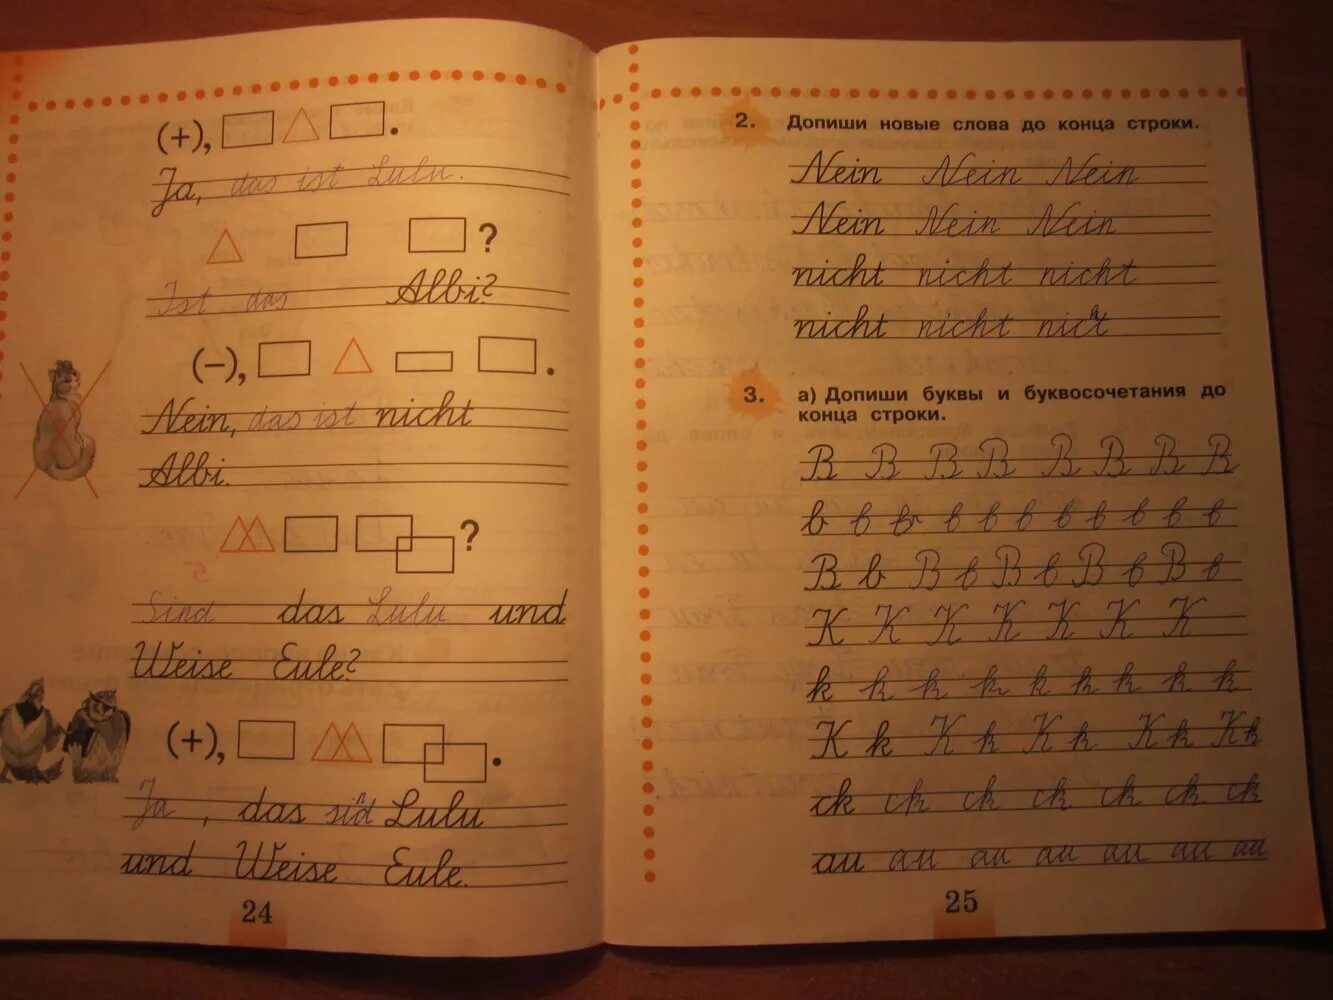 (+), .
Ja, das ist Lulu.
?
Ist das Albi?
(–), .
Nein, das ist nicht
Albi.
?
Sind das Lulu und
Weise Eule?
(+), .
Ja, das sind Lulu
und Weise Eule.
24
2. Допиши новые слова до конца строки.
Nein Nein Nein
Nein Nein Nein
nicht nicht nicht
nicht nicht nicht
3. а) Допиши буквы и буквосочетания до
конца строки.
B B B B B B B B
b b b b b b b b b b
B b B b B b B b B b
K K K K K K K
k k k k k k k k k
K k K k K k K k K k
ck ck ck ck ck ck ck
au au au au au au au
25